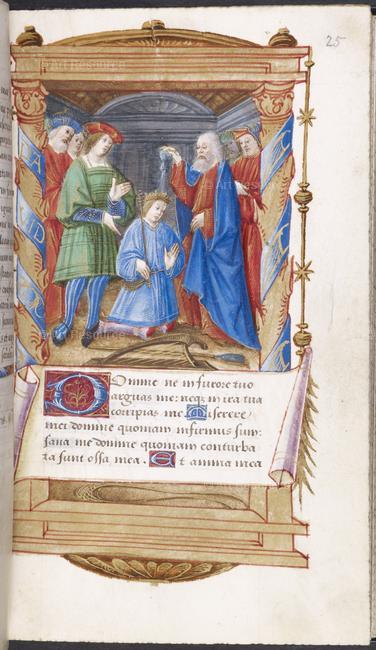 25
Domine ne in furore tuo
arguas me: neq; in ira tua
corripias me. Miserere
mei domine quoniam infirmus sum:
sana me domine quoniam conturba
ta sunt ossa mea. Et anima mea